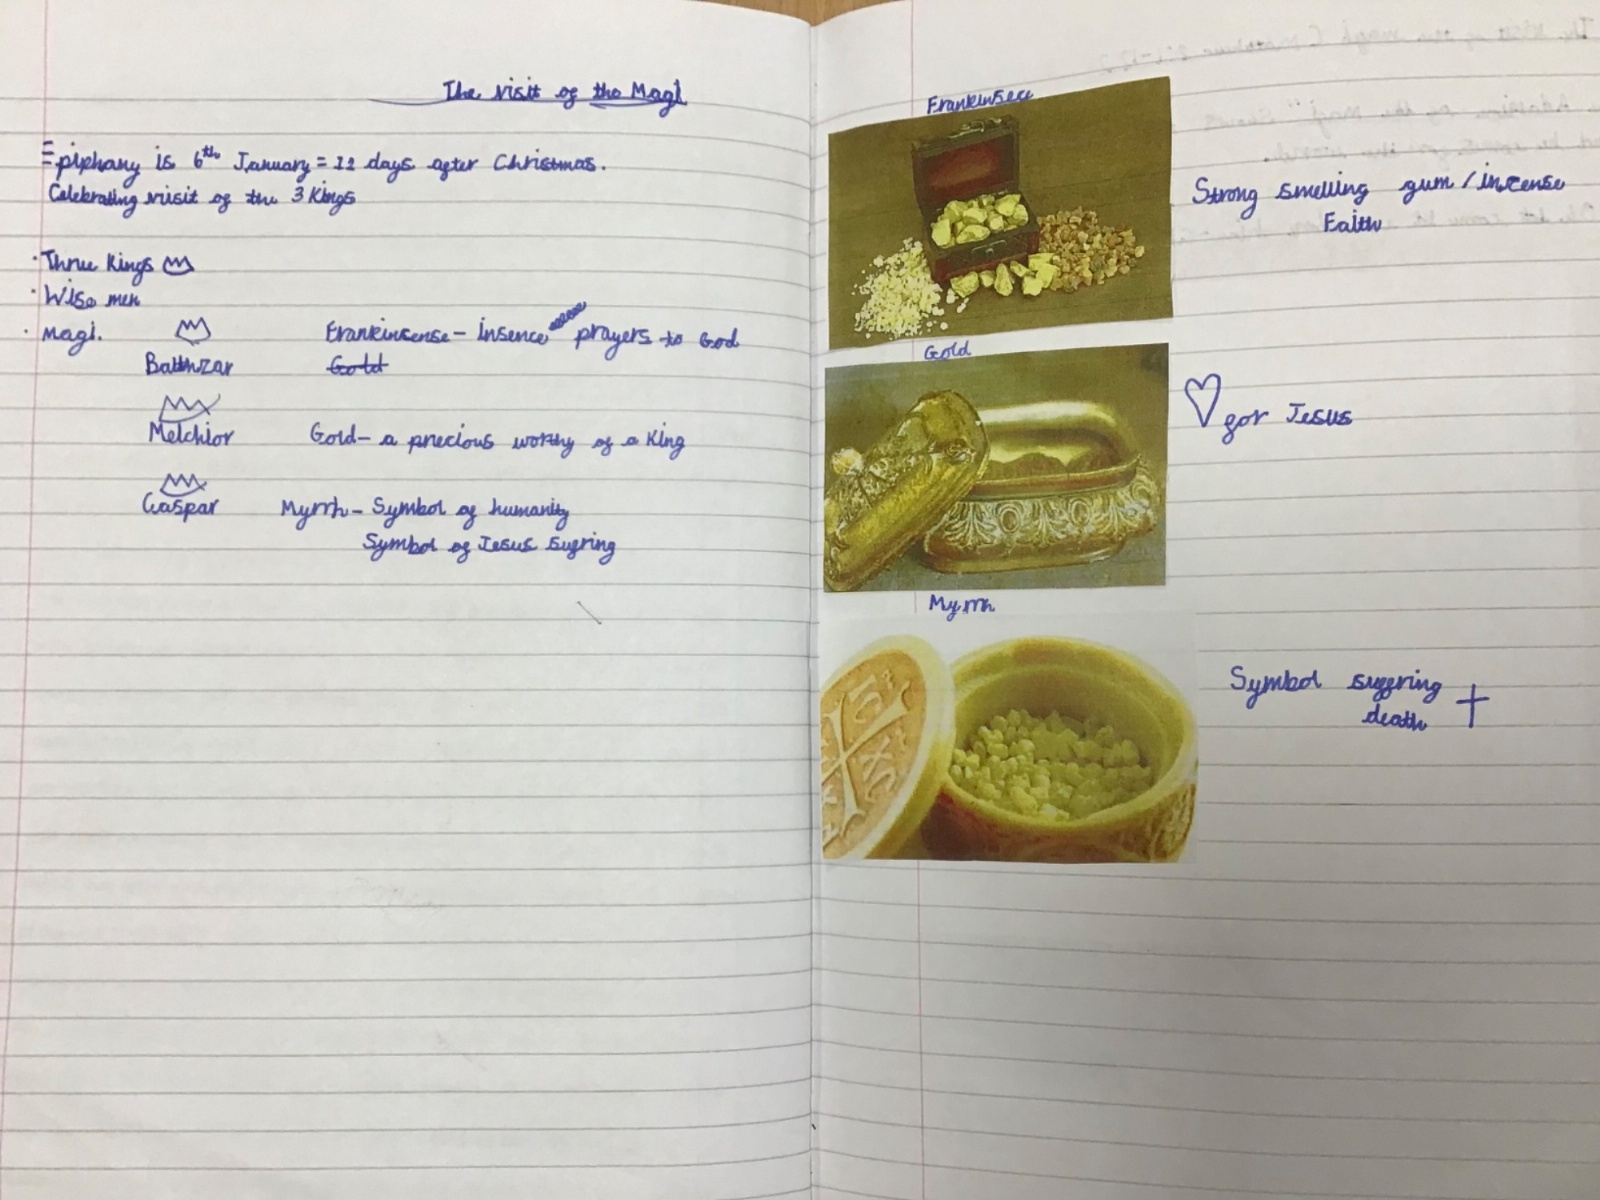 The visit of the Magi
Epiphany is 6th January = 12 days after Christmas.
Celebrating visit of the 3 Kings
· Three Kings
· Wise men
· Magi.
Balthzar
Frankinsense - insence prayers to God
Gold
Melchior
Gold - a precious worthy of a King
Caspar
Myrrh - Symbol of humanity
Symbol of Jesus sufring
Frankinsece
Strong smelling gum / incense
Faith
Gold
for Jesus
Myrrh
Symbol suffring
death